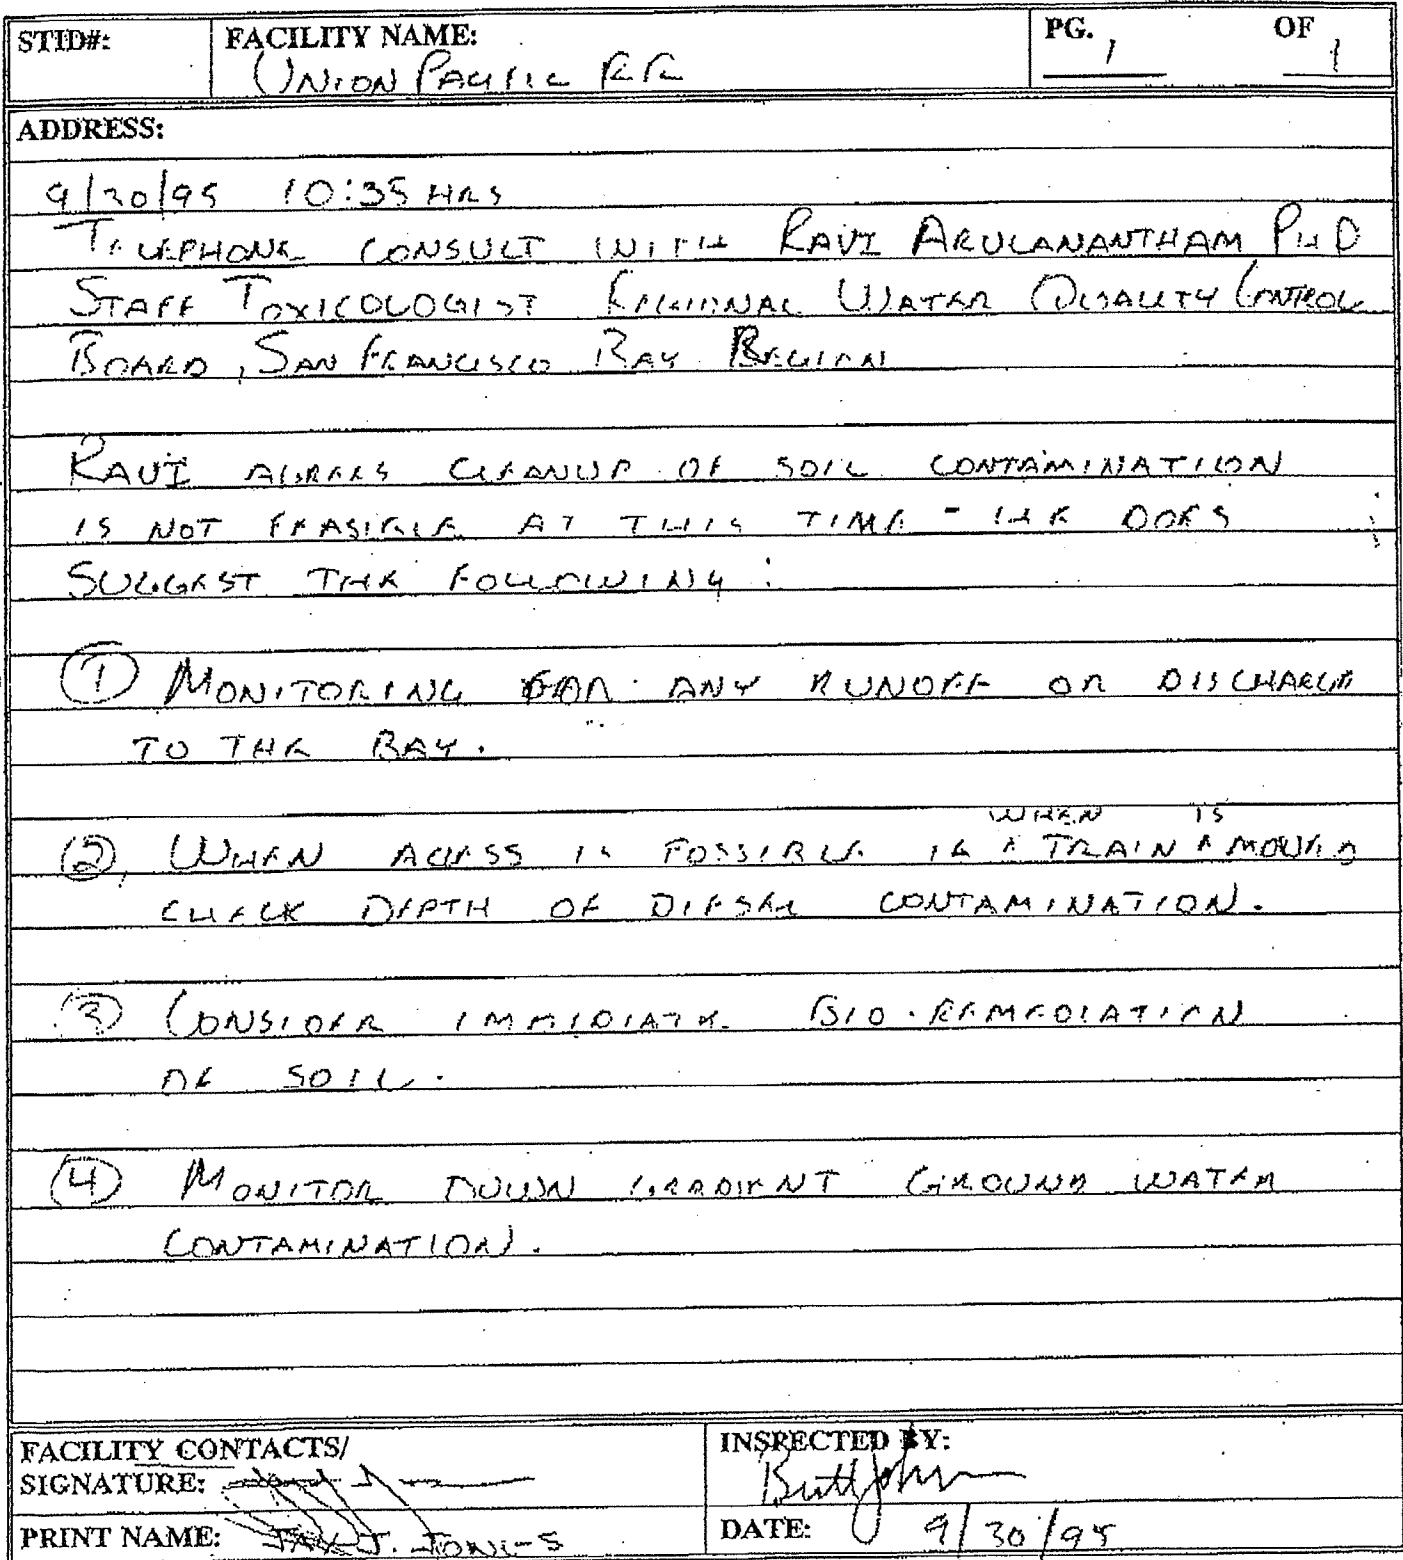 STID#: FACILITY NAME: PG. 1 OF 1
UNION PACIFIC RR
ADDRESS:
9/30/95 10:35 HRS
TELEPHONE CONSULT WITH RAVI ARULANANTHAM PHD
STAFF TOXICOLOGIST REGIONAL WATER QUALITY CONTROL
BOARD, SAN FRANCISCO BAY REGION
RAVI AGREES CLEANUP OF SOIL CONTAMINATION
IS NOT FEASIBLE AT THIS TIME - HE DOES
SUGGEST THE FOLLOWING:
① MONITORING FOR ANY RUNOFF OR DISCHARGE
TO THE BAY.
WHEN IS
② WHEN ACCESS IS POSSIBLE IE ^ TRAIN ^ MOVED
CHECK DEPTH OF DIESEL CONTAMINATION.
③ CONSIDER IMMIDIATE BIO-REMEDIATION
OF SOIL.
④ MONITOR DOWN GRADIENT GROUND WATER
CONTAMINATION.
FACILITY CONTACTS/ INSPECTED BY:
SIGNATURE:
PRINT NAME: JAY J. JONES DATE: 9/30/95